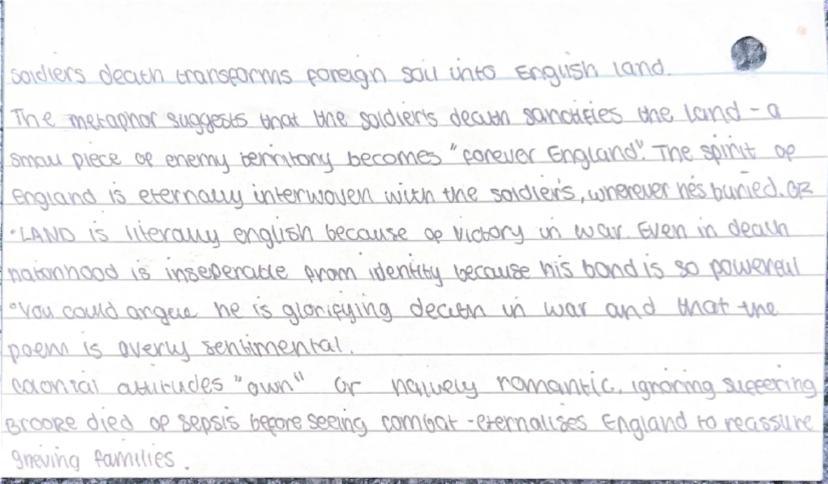 soldiers death transforms foreign soil into English land.
The metaphor suggests that the soldier's death sanctifies the land - a
small piece of enemy territory becomes "forever England". The spirit of
England is eternally interwoven with the soldier's, wherever he's buried. OR
•LAND is literally english because of victory in war. Even in death
nationhood is inseperable from identity because his bond is so powerful
•You could argue he is glorifying death in war and that the
poem is overly sentimental.
Colonial attitudes "own" or naively romantic, ignoring suffering
Brooke died of sepsis before seeing combat - eternalises England to reassure
grieving families.